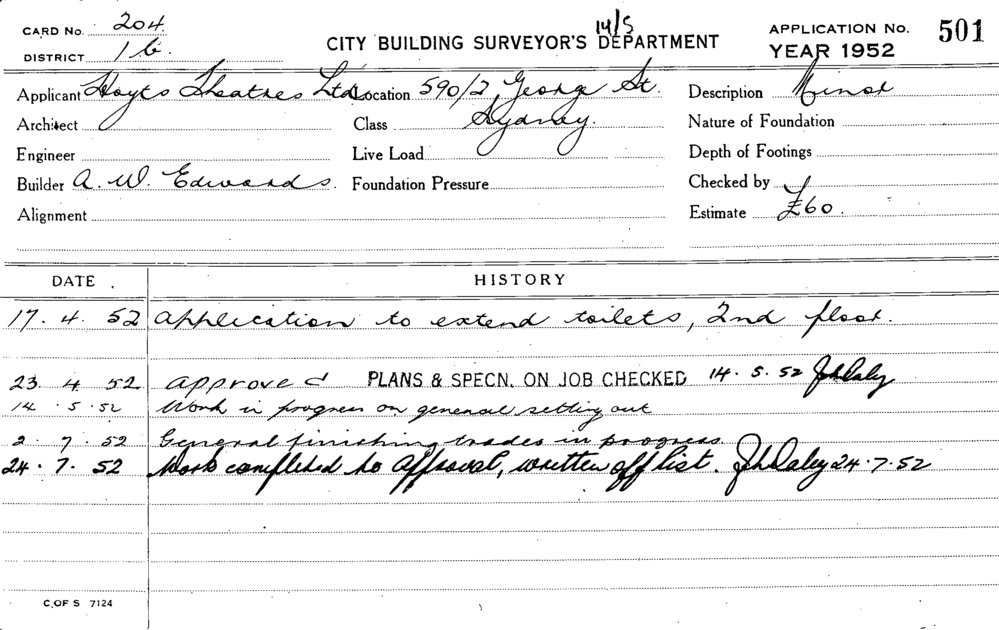 CARD No. 204. 14/5 APPLICATION No. 501
DISTRICT 1b. CITY BUILDING SURVEYOR'S DEPARTMENT YEAR 1952
Applicant Hoyts Theatres Ltd. Location 590/2 George St. Description Minor
Architect Class Sydney. Nature of Foundation
Engineer Live Load Depth of Footings
Builder A. W. Edwards. Foundation Pressure Checked by
Alignment Estimate £60.
DATE HISTORY
17. 4. 52 Application to extend toilets, 2nd floor.
23 4. 52 Approved PLANS & SPECN. ON JOB CHECKED 14. 5. 52 JhDaley
14 . 5 . 52 Work in progress on general setting out
2. 7. 52 General finishing trades in progress
24. 7. 52 Work completed to approval, written off list. JhDaley 24.7.52
C. OF S 7124